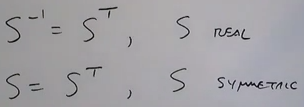 S⁻¹ = Sᵀ, S REAL
S = Sᵀ, S SYMMETRIC